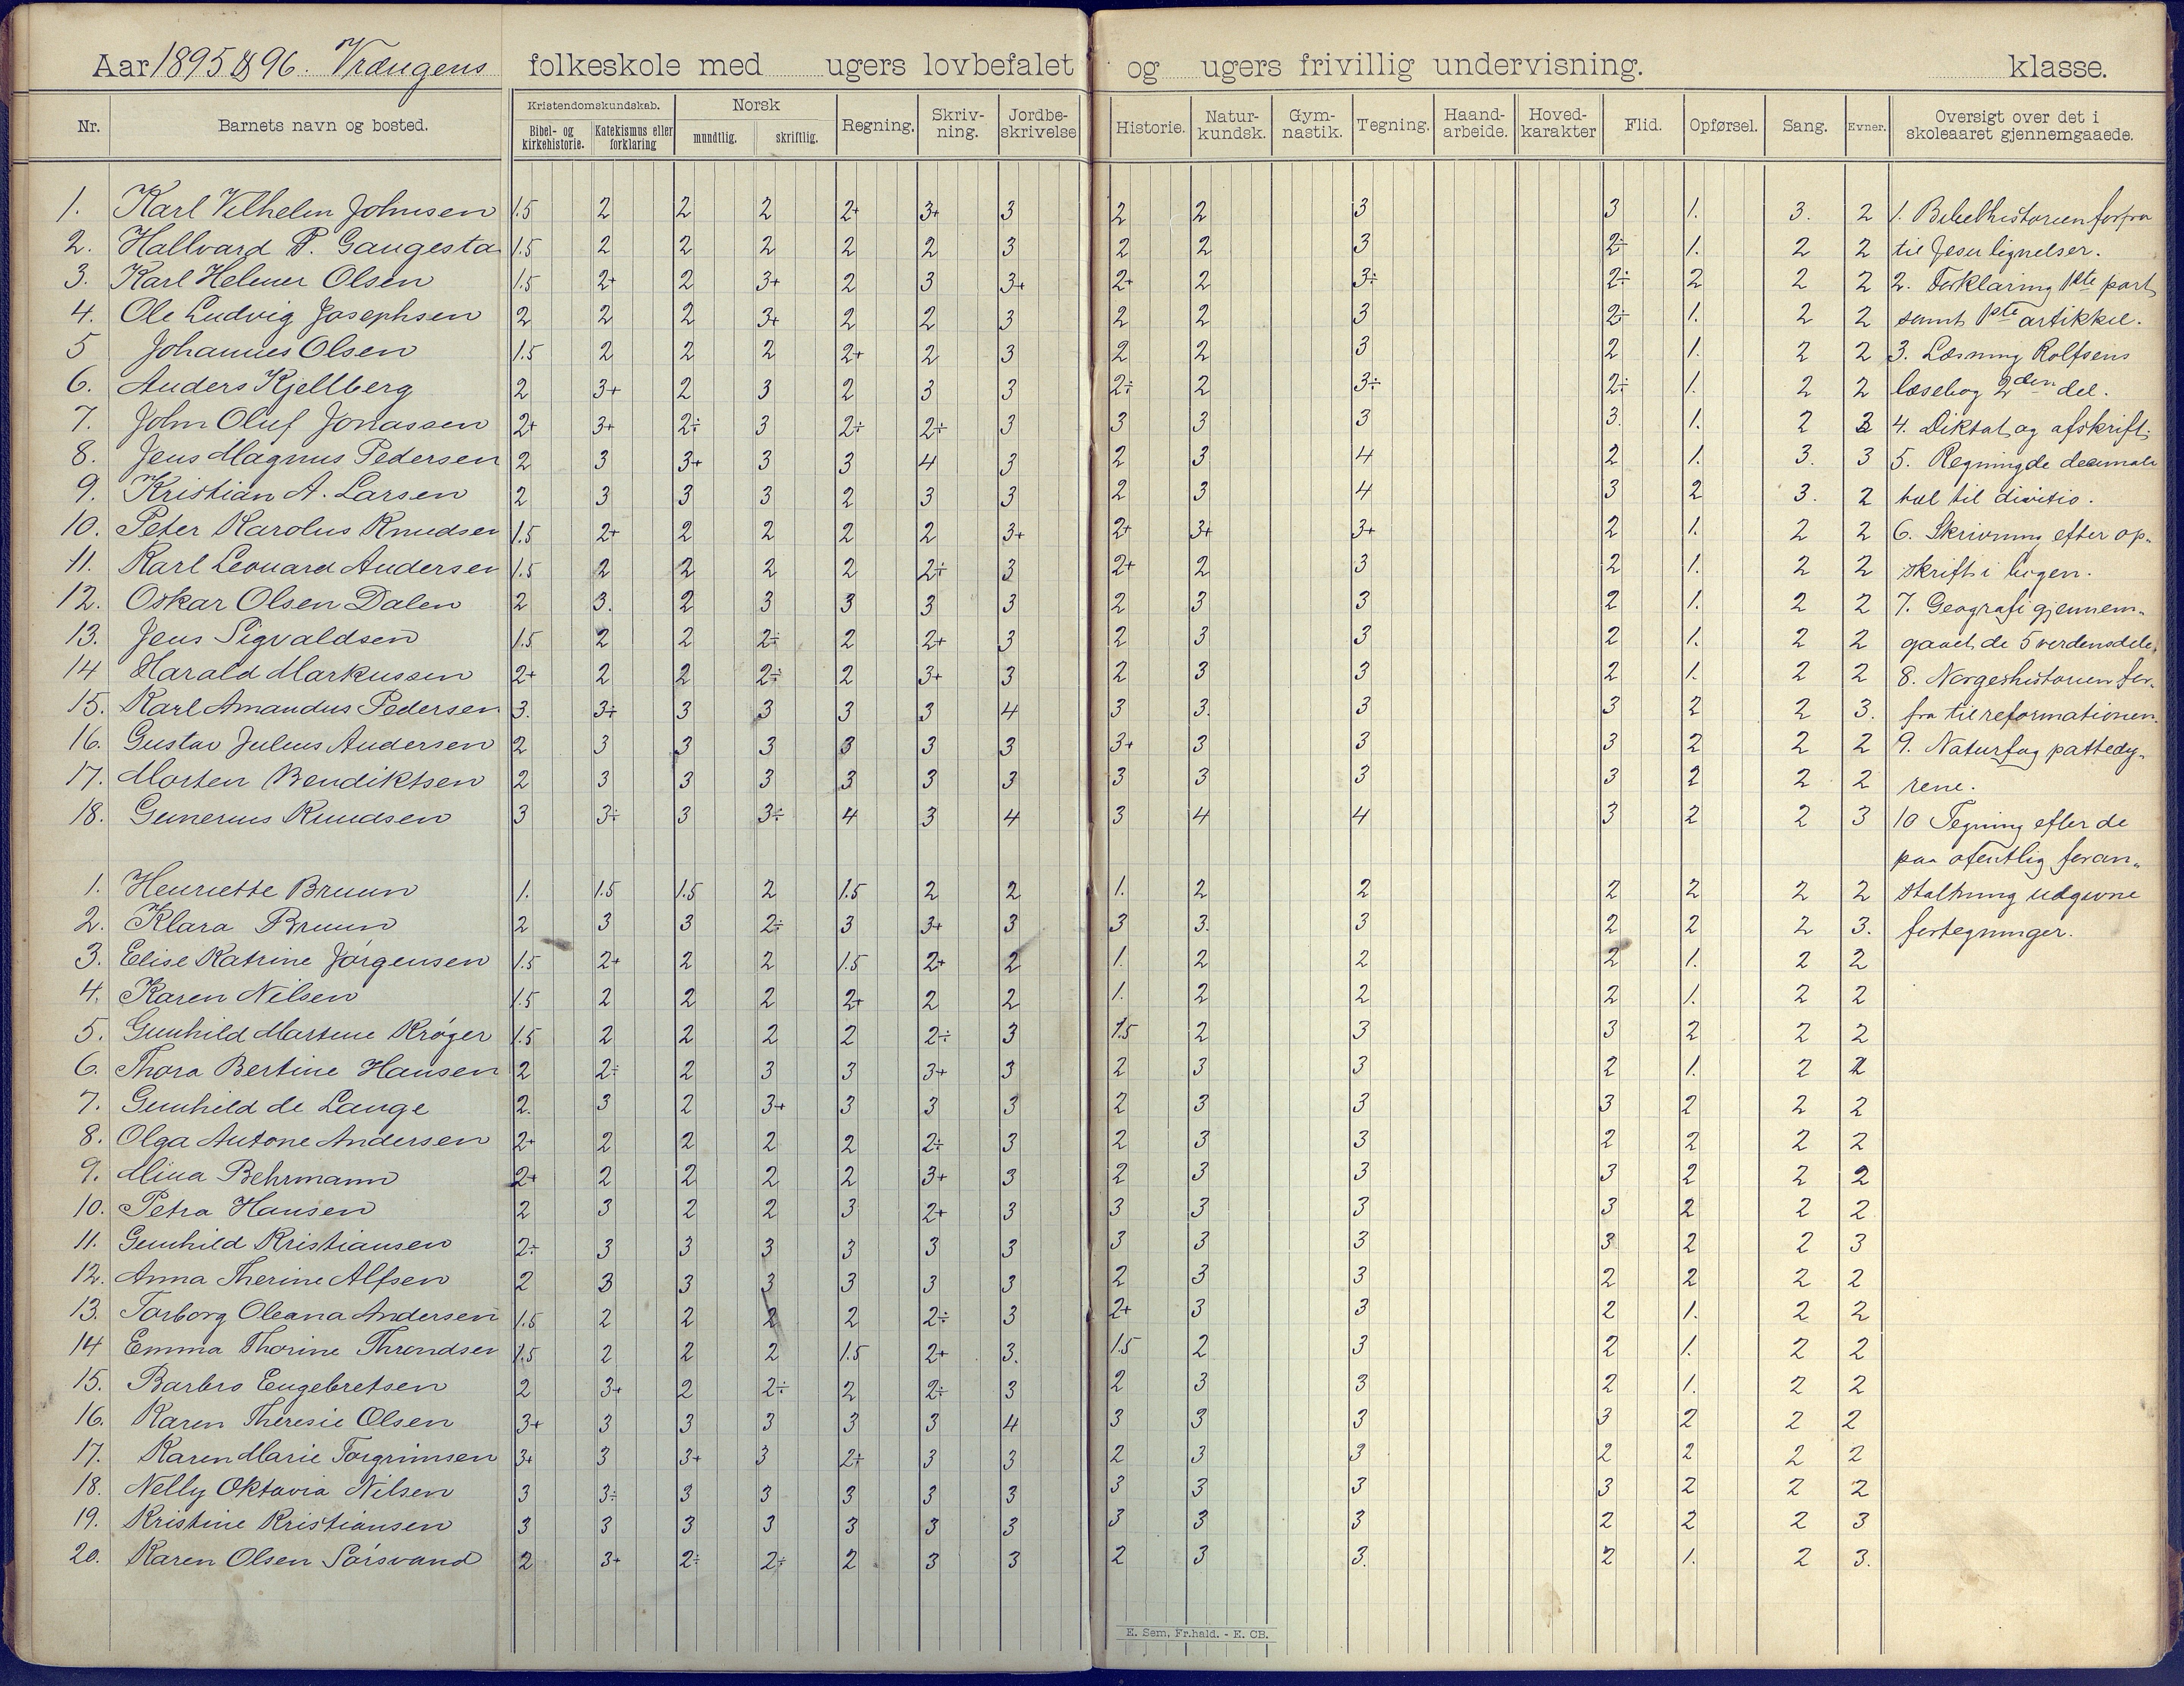 Aar 1895 & 96. Vrængens folkeskole med ugers lovbefalet og ugers frivillig undervisning. klasse.
Nr. Barnets navn og bosted. Kristendomskundskab. Bibel- og kirkehistorie. Katekismus eller forklaring Norsk mundtlig. skriftlig. Regning. Skriv-ning. Jordbe-skrivelse Historie. Natur-kundsk. Gym-nastik. Tegning. Haand-arbeide. Hoved-karakter Flid. Opførsel. Sang. Evner. Oversigt over det i skoleaaret gjennemgaaede.
1. Karl Vilhelm Johnsen 1.5 2 2 2 2+ 3+ 3 2 2 3 3 1. 3. 2 1. Bibelhistorien forfra
2. Hallvard P. Gaugesta 1.5 2 2 2 2 2 3 2 2 3 2÷ 1. 2 2 til Jesu lignelser.
3. Karl Helmer Olsen 1.5 2+ 2 3+ 2 3 3+ 2+ 2 3÷ 2÷ 2 2 2 2. Forklaring 1ste part
4. Ole Ludvig Josephsen 2 2 2 3+ 2 2 3 2 2 3 2÷ 1. 2 2 samt 1ste artikkel.
5 Johannes Olsen 1.5 2 2 2 2+ 2 3 2 2 3 2 1. 2 2 3. Læsning Rolfsens
6. Anders Kjellberg 2 3+ 2 3 2 3 3 2÷ 2 3÷ 2÷ 1. 2 2 læsebog 2den del.
7. John Oluf Jonassen 2+ 3+ 2÷ 3 2÷ 2÷ 3 3 3 3 3. 1. 2 3 4. Diktat og afskrift.
8. Jens Magnus Pedersen 2 3 3+ 3 3 4 3 2 3 4 2 1. 3. 3 5. Regning de decimale
9. Kristian A. Larsen 2 3 3 3 2 3 3 2 3 4 3 2 3. 2 tal til divitio.
10. Peter Karolus Knudsen 1.5 2+ 2 2 2 2 3+ 2+ 3+ 3+ 2 1. 2 2 6. Skrivning efter op-
11. Karl Leonard Andersen 1.5 2 2 2 2 2÷ 3 2+ 2 3 2 1. 2 2 skrift i bogen.
12. Oskar Olsen Dalen 2 3. 2 3 3 3 3 2 3 3 2 1. 2 2 7. Geografi gjennem-
13. Jens Sigvaldsen 1.5 2 2 2÷ 2 2+ 3 2 3 3 2 1. 2 2 gaaet de 5 verdensdele.
14 Harald Markussen 2+ 2 2 2÷ 2 3+ 3 2 3 3 2 1. 2 2 8. Norgeshistorien for-
15. Karl Amandus Pedersen 3. 3÷ 3 3 3 3 4 3 3. 3 3 2 2 3. fra til reformationen.
16. Gustav Julius Andersen 2 3 3 3 3 3 3 3+ 3 3 3 2 2 2 9. Naturfag pattedy-
17. Morten Bendiktsen 2 3 3 3 3 3 3 3 3 3 3 2 2 2 rene.
18. Gunerius Knudsen 3 3÷ 3 3÷ 4 3 4 3 4 4 3 2 2 3 10 Tegning efter de
paa ofentlig foran-
1. Henriette Bruun 1. 1.5 1.5 2 1.5 2 2 1. 2 2 2 2 2 2 staltning udgivne
2. Klara Bruun 2 3 3 2÷ 3 3+ 3 3 3. 3 2 2 2 3. fortegninger.
3. Elise Katrine Jørgensen 1.5 2+ 2 2 1.5 2+ 2 1. 2 2 2 1. 2 2
4. Karen Nilsen 1.5 2 2 2 2+ 2 2 1. 2 2 2 1. 2 2
5. Gunhild Martine Krøger 1.5 2 2 2 2 2÷ 3 1.5 2 3 3 2 2 2
6. Thora Bertine Hansen 2 2÷ 2 3 3 3+ 3 2 3 3 2 1. 2 2
7. Gunhild de Lange 2. 3 2 3+ 3 3 3 2 3 3 3 2 2 2
8. Olga Antone Andersen 2+ 2 2 2 2 2÷ 3 2 3 3 2 2 2 2
9. Mina Behrmann 2+ 2 2 2 2 3+ 3 2 3 3 3 2 2 2
10. Petra Hansen 2 3 2 2 3 2+ 3 3 3 3 3 2 2 2
11. Gunhild Kristiansen 2÷ 3 3 3 3 3 3 3 3 3 3 2 2 3
12. Anna Therine Alfsen 2 3 3 3 3 3 3 2 3 3 2 2 2 2
13. Torborg Oleana Andersen 1.5 2 2 2 2 2÷ 3 2+ 3 3 2 1. 2 2
14 Emma Thorine Throndsen 1.5 2 2 2 1.5 2+ 3. 1.5 2 3 2 1. 2 2
15. Barbro Engebretsen 2 3+ 2 2÷ 2 2÷ 3 2 3 3 2 1. 2 2
16. Karen Theresie Olsen 3+ 3 3 3 3 3 4 3 3 3 3 2 2 2
17. Karen Marie Torgrimsen 3+ 3 3+ 3 2÷ 3 3 2 3 3 2 2 2 2
18. Nelly Oktavia Nilsen 3 3÷ 3 3 3 3 3 3 3 3 3 2 2 2
19. Kristine Kristiansen 3 3 3 3 3 3 3 3 3 3 2 2 2 3
20. Karen Olsen Sørsvand 2 3+ 2÷ 2÷ 2 3 3 2 3 3. 2 1. 2 3.
E. Sem, Fr.hald. - E. CB.